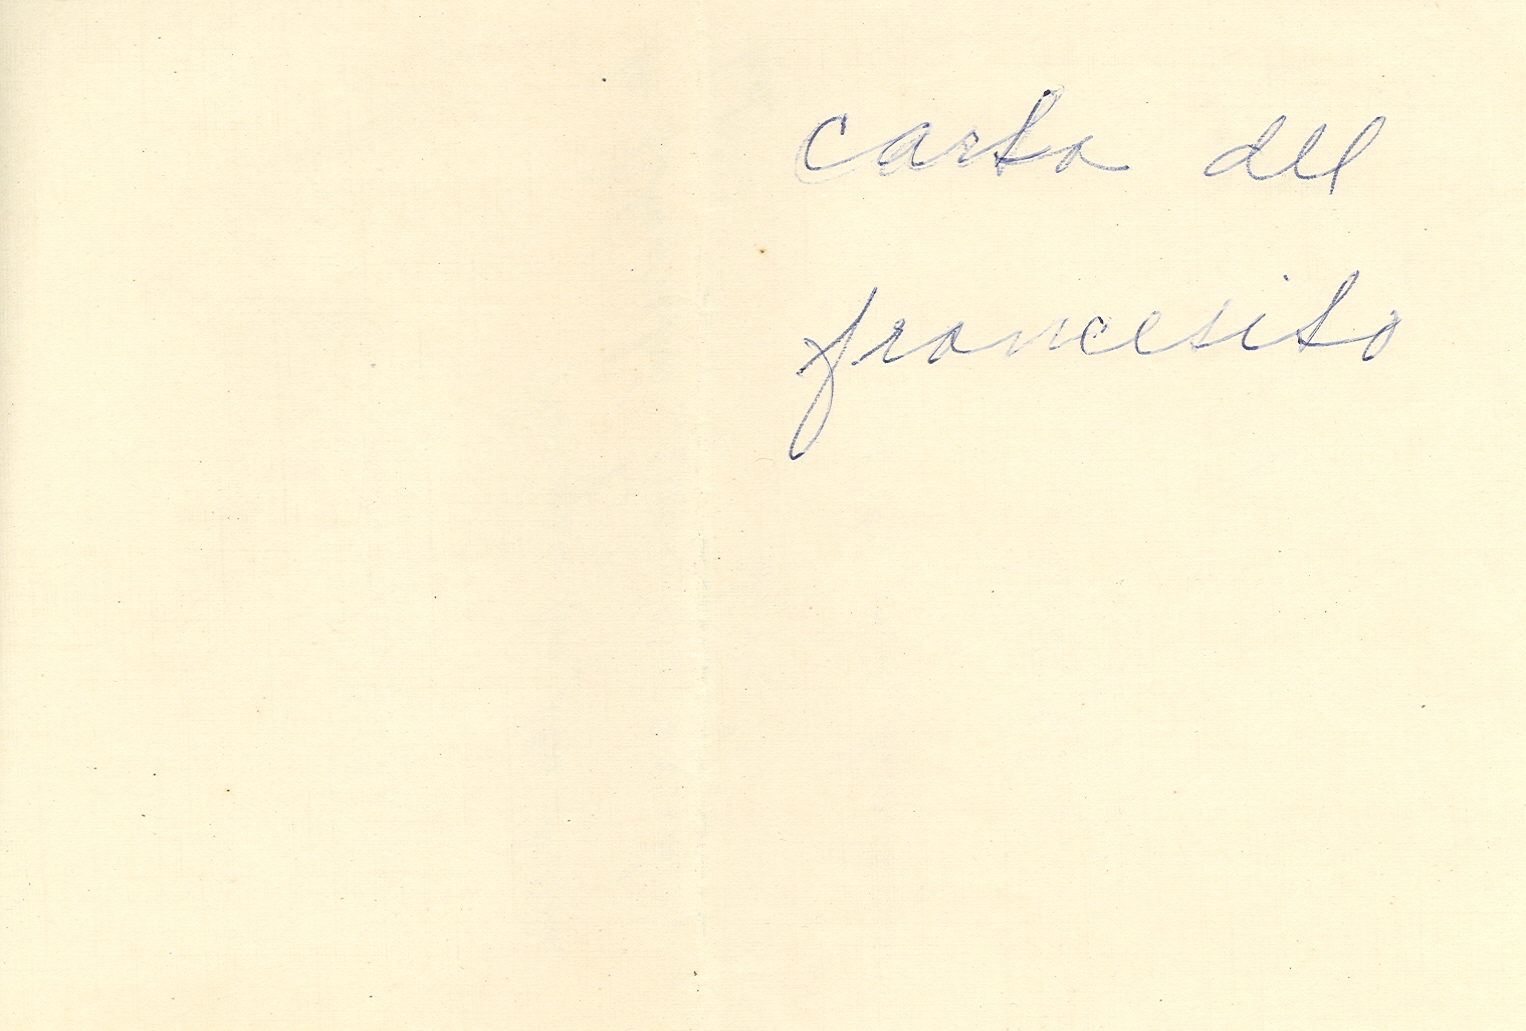 carta del
francesito